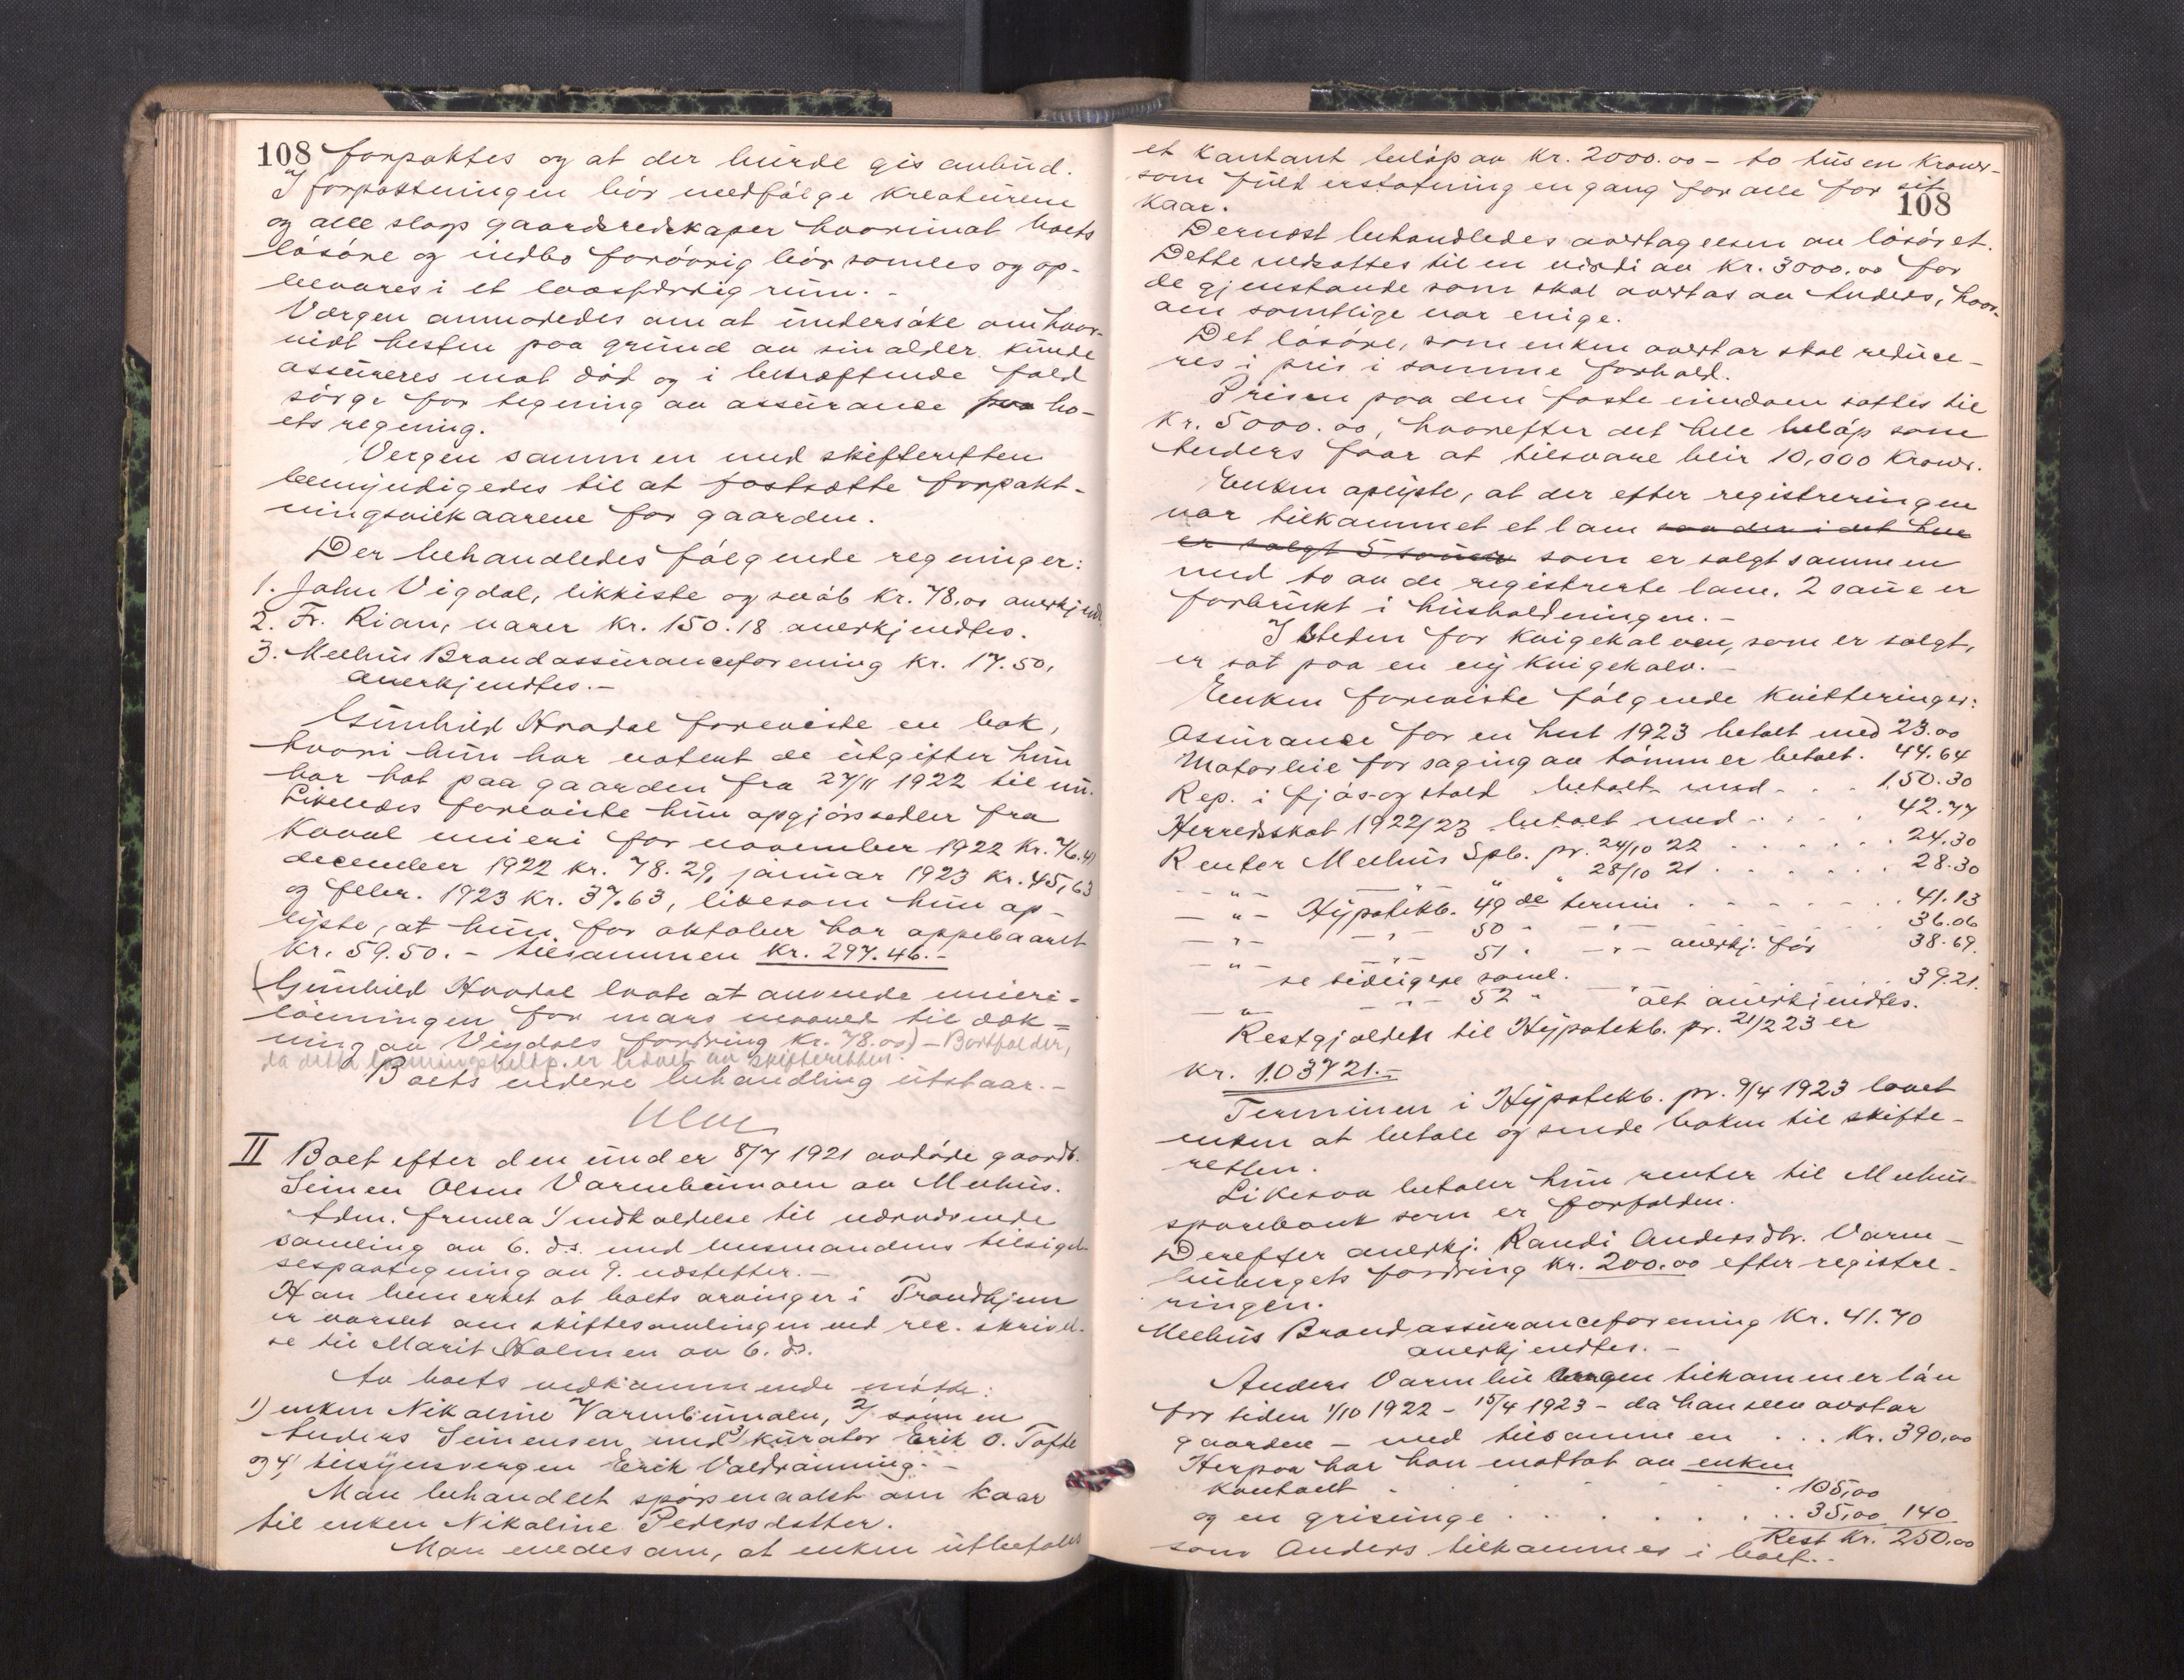 108 forpaktes og at der burde gis anbud.
I forpaktningen bör medfölge kreaturene
og alle slags gaardsredskaper hvorimot boets
lösöre og indbo forövrig bör samles og op-
bevares i et laasfærdig rum. -
Værgen anmodedes om at undersöke om hvor-
vidt hesten paa grund av sin alder kunde
assureres mot död og i bekræftende fald
sörge for tegning av assurance paa bo-
ets regning.
Vergen sammen med skifteretten
bemyndigedes til at fastsætte forpakt-
ningsvilkaarene for gaarden.
Der behandledes fölgende regninger:
1. John Vigdal, likkiste og svöb kr. 78,00 anerkjend.
2. Fr. Rian, varer kr. 150.18 anerkjendtes.
3. Melhus Brandassuranceforening kr. 17.50,
anerkjendtes. -
Gunhild Hovdal foreviste en bok,
hvori hun har notert de utgifter hun
har hat paa gaarden fra 27/11 1922 til nu.
Likeledes foreviste hun opgjörssedler fra
Kvaal meieri for november 1922 kr. 76.41
december 1922 kr. 78.29, januar 1923 kr. 45,63
og febr. 1923 kr. 37.63, likesom hun op-
lyste, at hun for oktober har oppebaaret
kr. 59.50. - tilsammen kr. 297.46. -
(Gunhild Hovdal lovte at anvende meieri-
lönningen for mars maaned til dæk-
ning av Vigdals fordring kr. 78.00) - Bortfalder,
da dette er betalt av skifteretten.
Boets videre behandling utstaar. -
II Boet efter den under 8/7 1921 avdöde gaardb.
Seinen Olsen Varmbumoen av Melhus.
Adm. fremla 1/ indkaldelse til nærværende
samling av 6. ds. med lensmandens tilsigel-
sespaategning av 9. næstefter. -
Han bemerket at boets arvinger i Trondhjem
er varslet om skiftesamlingen ved rec. skrivel-
se til Marit Holmen av 6. ds.
Av boets vedkommende mötte:
1) enken Nikoline Varmbumoen, 2/ sönnen
Anders Seinensen med 3/ kurator Erik O. Tofte
og 4/ tilsynsvergen Erik Valdrænning. -
Man behandlet spörsmaalet om kaar
til enken Nikoline Pedersdatter.
Man enedes om, at enken utbetales
et kontant belöp av kr. 2000.00 - to tusen kroner -
som fuld erstatning en gang for alle for sit
108
kaar.
Dernæst behandledes overtagelsen av lösöret.
Dette nedsattes til en værdi av kr. 3000.00 for
de gjenstande som skal overtas av Anders, hvor-
om samtlige var enige.
Det lösöre, som enken overtar skal reduce-
res i pris i samme forhold.
Prisen paa den faste eiendom sattes til
kr. 5000.00, hvorefter det hele belöp som
Anders faar at tilsvare blir 10,000 kroner.
Enken oplyste, at der efter registreringen
var tilkommet et lam saa der i det hele
er solgt 5 sauer som er solgt sammen
med to av de registrerte lam. 2 saue er
forbrukt i husholdningen. -
I steden for kvigekalven, som er solgt,
er sat paa en ny kvigekalv. -
Enken foreviste fölgende kvitteringer:
Assurance for en hest 1923 betalt med 23.00
Motorleie for saging av tömmer betalt. 44.64
Rep. i fjös og stald betalt med - . . 150.30
Herredsskat 1922/23 betalt med . . . . 42.77
Renter Melhus Spb. pr. 24/10 22 . . . . . . 24.30
" 28/10 21 . . . . . . 28.30
- " - Hypotekb. 49 de termin . . . . . . . 41.13
- " - - " - 50 " - " - 36.06
- " - - " - 51 " - " - anerkj. för 38.69.
se tidligere saml.
- " - - " - 52 " - " - 39.21.
alt anerkjendtes.
Restgjælden til Hypotekb. pr. 21/2 23 er
kr. 1.037 21. -
Terminen i Hypotekb. pr. 9/4 1923 lovet
enken at betale og sende boken til skifte-
retten.
Likesaa betaler hun renter til Melhus
sparebank som er forfalden.
Derefter anerkj. Randi Andersdtr. Varm-
bubergets fordring kr. 200.00 efter registre-
ringen.
Melhus Brandassuranceforening kr. 41.70
anerkjendtes. -
Anders Varmbu tilkommer lön
for tiden 1/10 1922 - 15/4 1923 - da han selv overtar
gaarden - med tilsammen . . . Kr. 390,00
Herpaa har han mottat av enken
kontant . . . . . . 105,00
og en grisunge . . . . . . . 35,00 140
Rest Kr. 250.00
som Anders tilkommes i boet. -